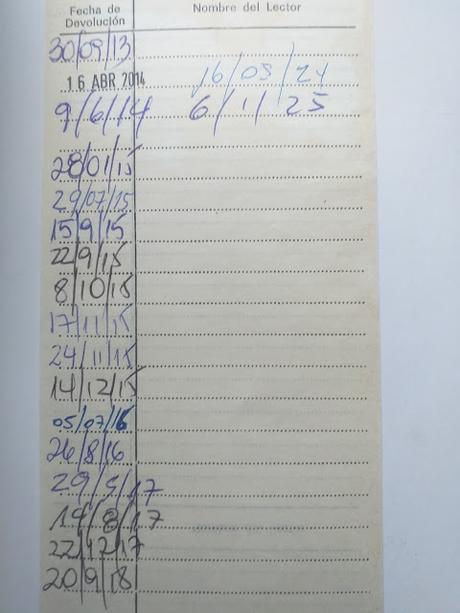 Fecha de Devolución
Nombre del Lector
30/09/13
16 ABR 2014
16/05/24
9/6/14
6/1/25
28/01/15
29/07/15
15/9/15
22/9/15
8/10/15
17/11/15
24/11/15
14/12/15
05/07/16
26/8/16
29/5/17
19/8/17
22/12/17
20/9/18